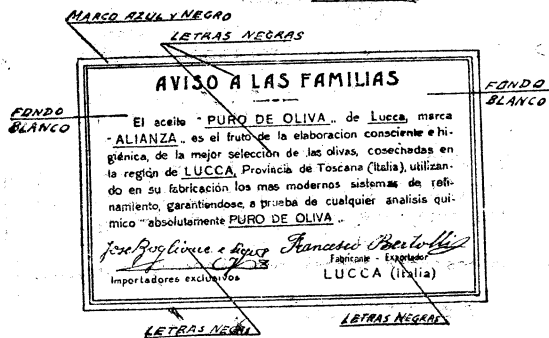 MARCO AZUL Y NEGRO
LETRAS NEGRAS
AVISO A LAS FAMILIAS
FONDO BLANCO
FONDO BLANCO
El aceite "PURO DE OLIVA„ de Lucca, marca
"ALIANZA„ es el fruto de la elaboracion consciente e hi-
giénica, de la mejor selección de las olivas, cosechadas en
la región de LUCCA, Provincia de Toscana (Italia), utilizan-
do en su fabricación los mas modernos sistemas de refi-
namiento, garantiendose, a prueba de cualquier analisis quí-
mico "absolutamente PURO DE OLIVA„.
Jose Boglione e Francesco Bertolli
Fabricante - Exportador
Importadores exclusivos LUCCA (Italia)
LETRAS NEGRAS
LETRAS NEGRAS